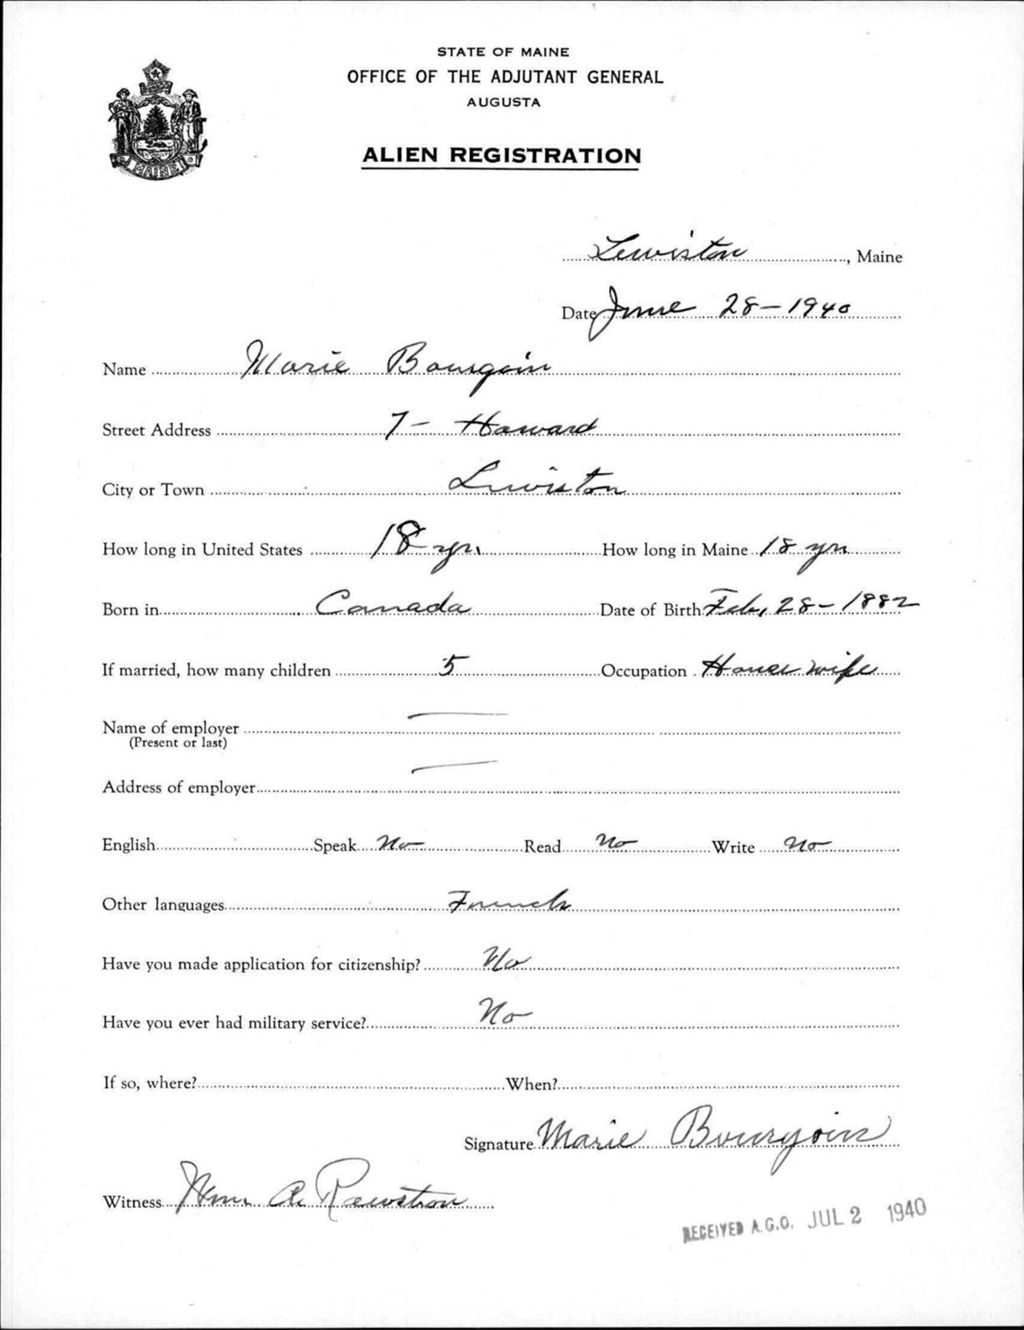 STATE OF MAINE
OFFICE OF THE ADJUTANT GENERAL
AUGUSTA
ALIEN REGISTRATION
MAINE
Lewiston, Maine
Date June 28-1940
Name Marie Bourgoin
Street Address 7- Howard
City or Town Lewiston
How long in United States 18 yrs. How long in Maine 18 yrs
Born in Canada Date of Birth Feb, 28-1882
If married, how many children 5 Occupation Housewife
Name of employer —
(Present or last)
Address of employer —
English Speak No Read No Write No
Other languages French
Have you made application for citizenship? No
Have you ever had military service? No
If so, where? When?
Signature Marie Bourgoin
Witness Wm A. Rawstron
RECEIVED A.G.O. JUL 2 1940